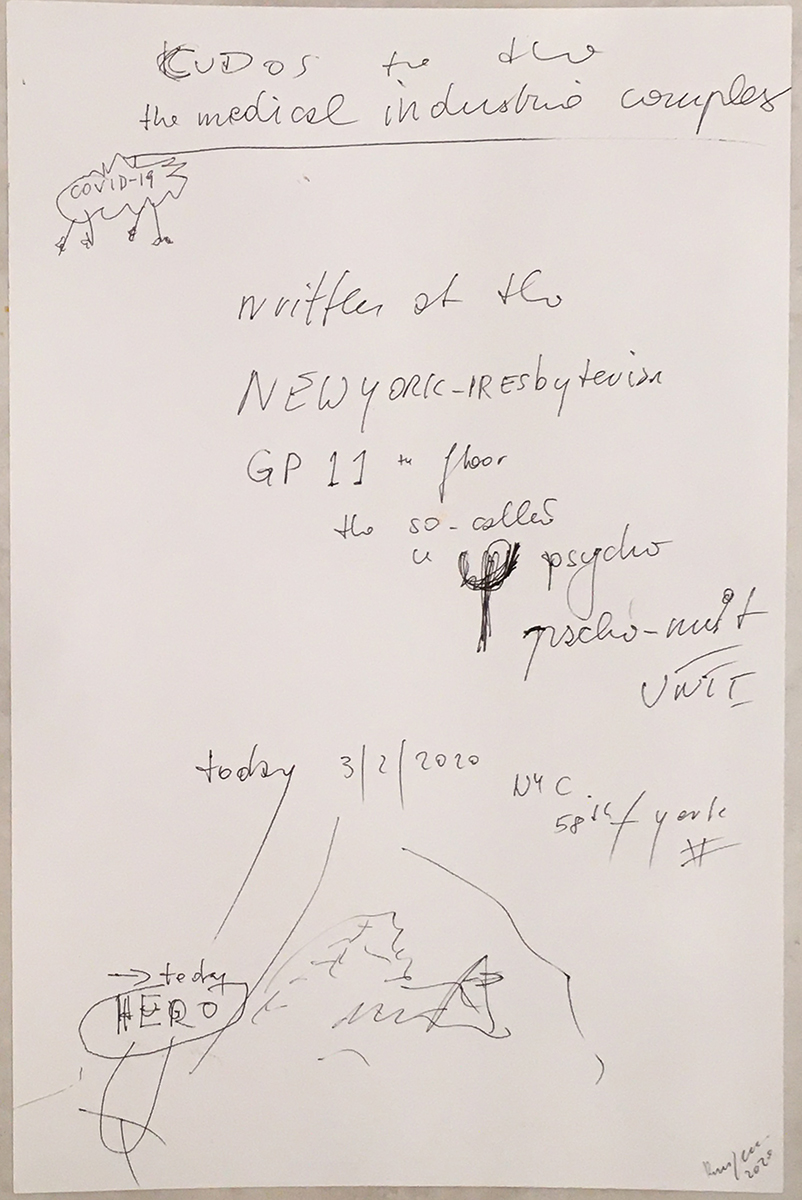 KUDOS to the
the medical industrie complex
COVID-19
written at the
NEW YORK-PRESbyterian
GP 11 th floor
the so-called
psycho
pscho-unit
UNIT
today 3/2/2020
NYC
58th/york
→ today
HERO
2020